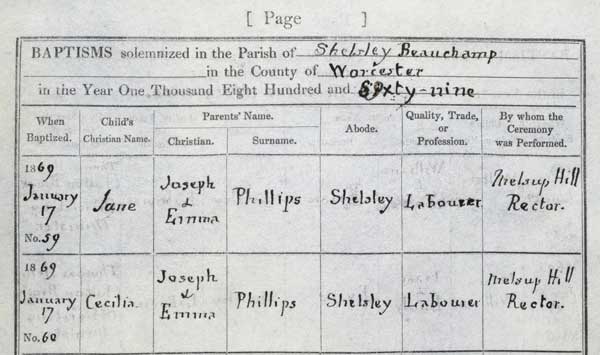 [ Page ]
BAPTISMS solemnized in the Parish of Shelsley Beauchamp
in the County of Worcester
in the Year One Thousand Eight Hundred and Sixty-nine
When Baptized. Child's Christian Name. Parents' Name. Abode. Quality, Trade, or Profession. By whom the Ceremony was Performed.
Christian. Surname.
1869
January 17
No. 59
Jane
Joseph & Emma
Phillips
Shelsley
Labourer
Hill Rector.
1869
January 17
No. 60
Cecilia
Joseph & Emma
Phillips
Shelsley
Labourer
Hill Rector.